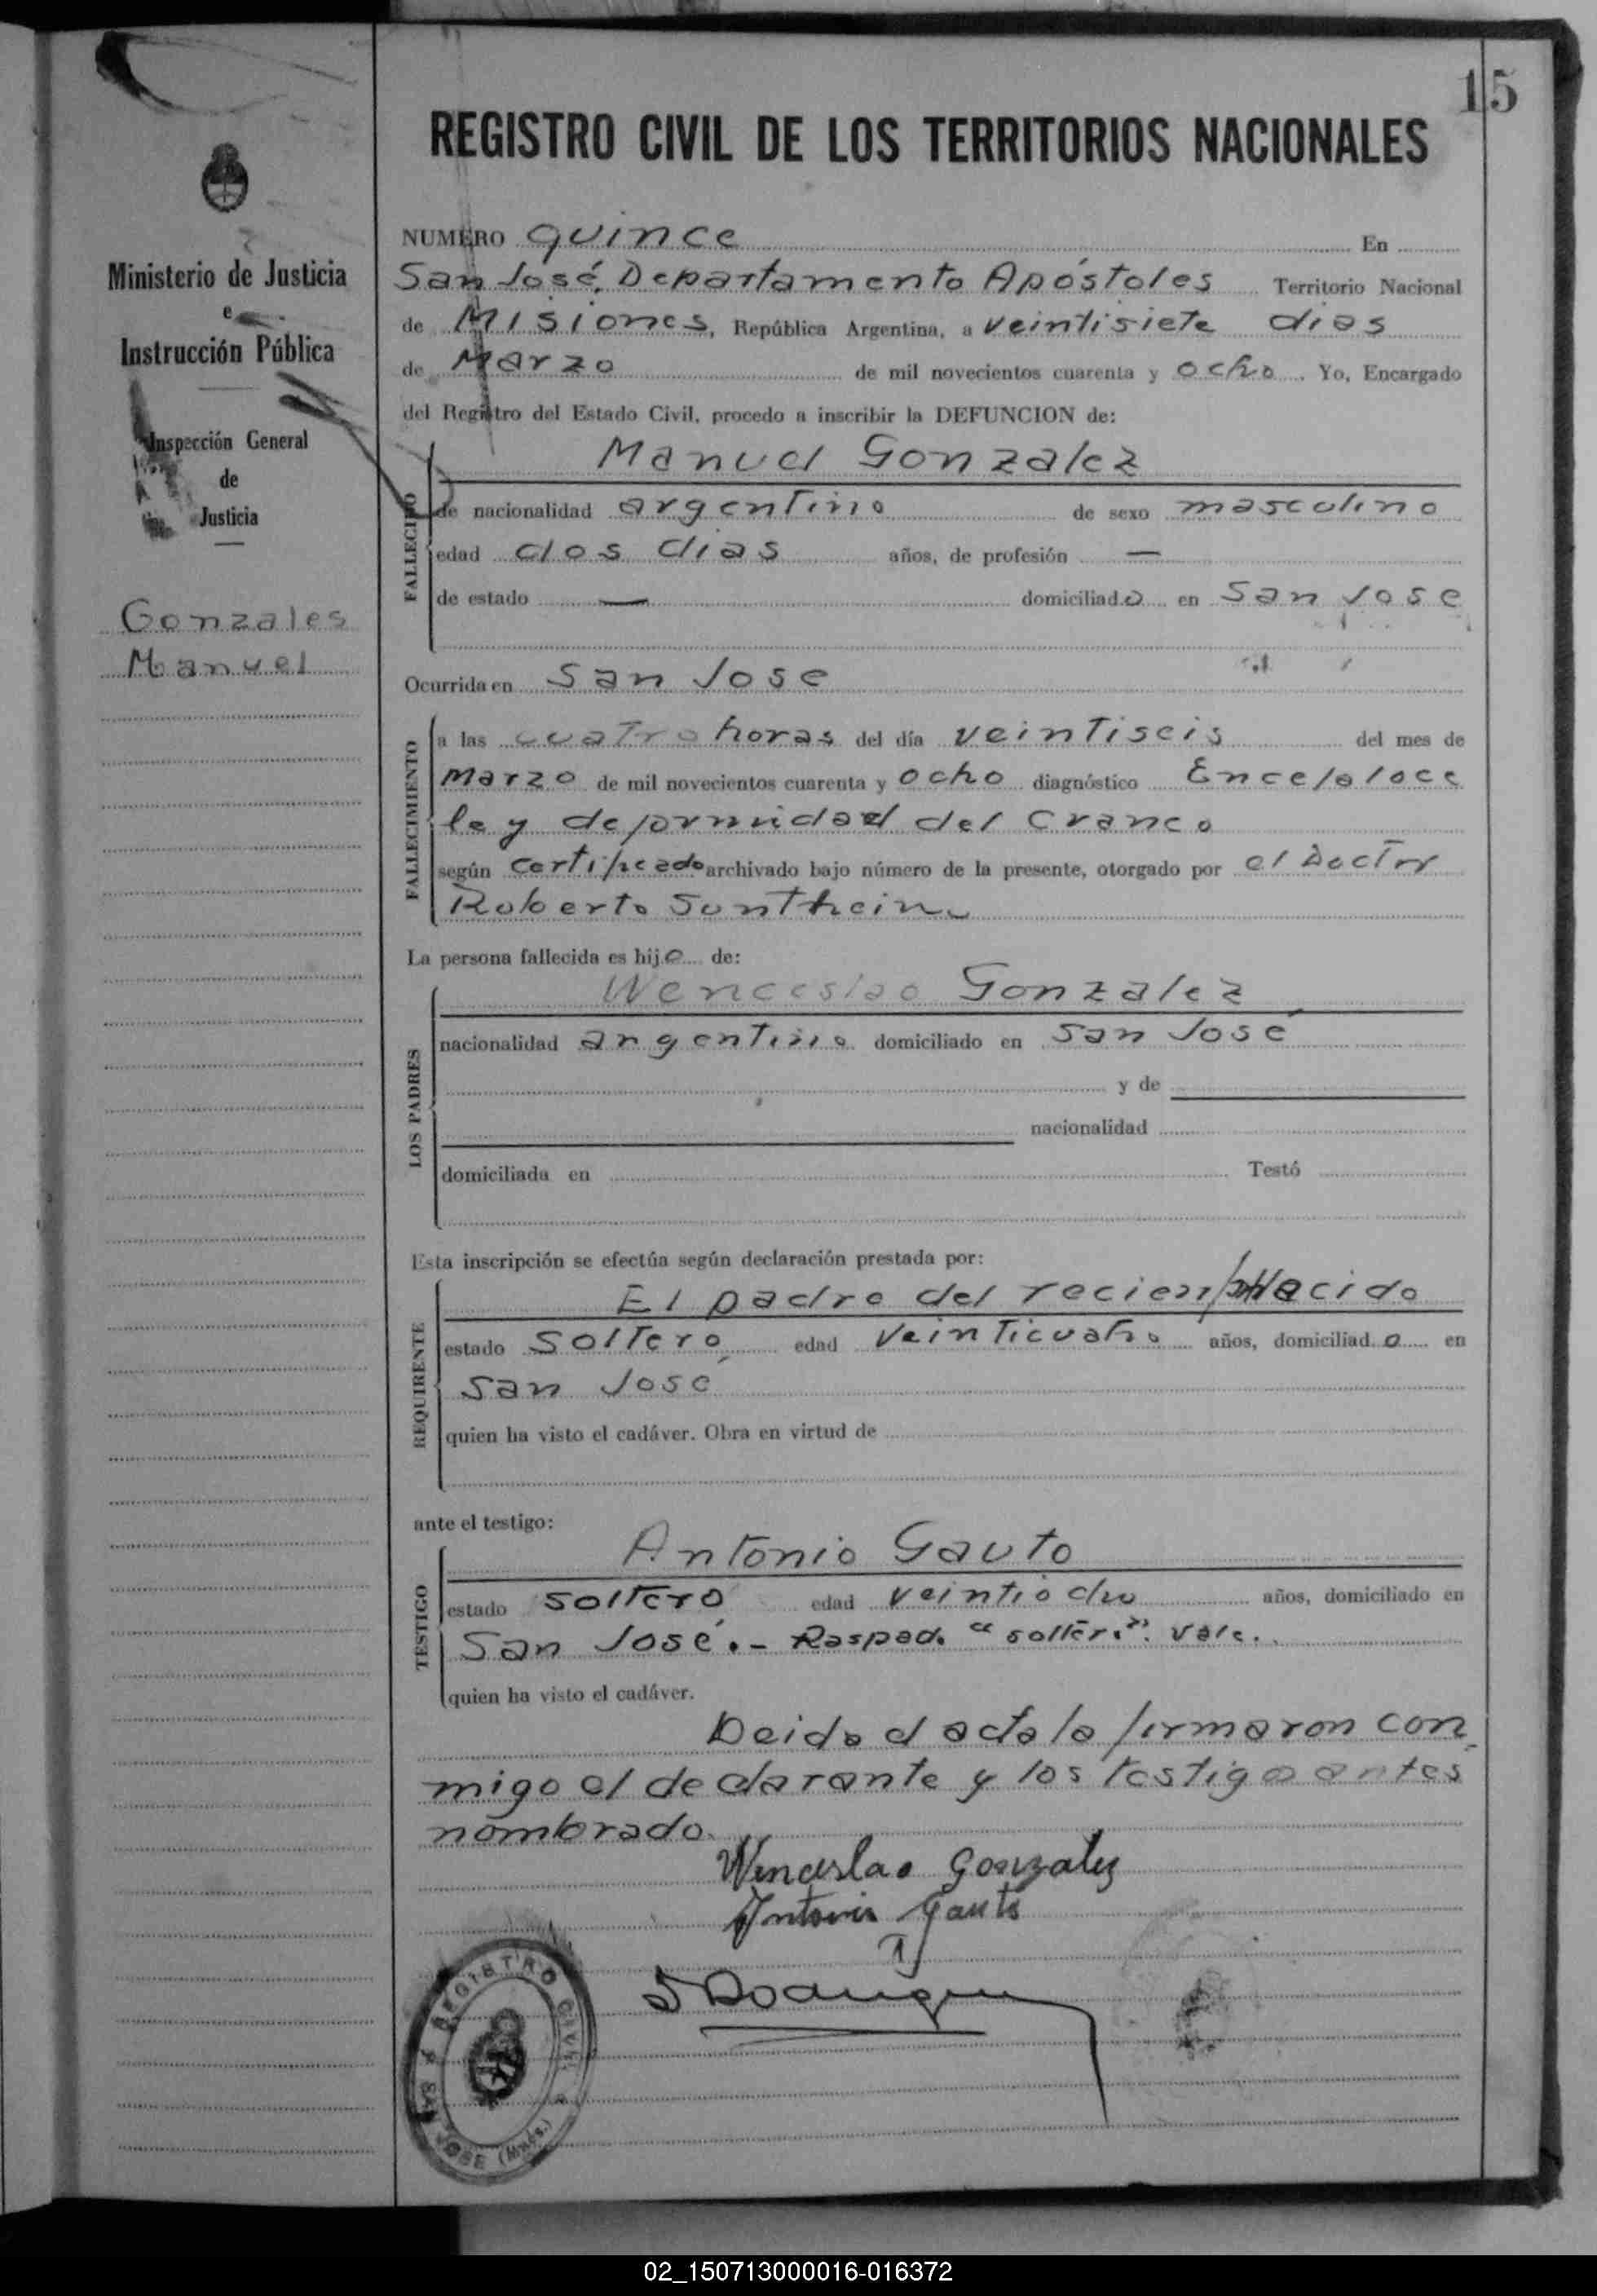 15
REGISTRO CIVIL DE LOS TERRITORIOS NACIONALES
Ministerio de Justicia
e
Instrucción Pública
Inspección General
de
Justicia
Gonzales
Manuel
NUMERO quince En
San José, Departamento Apóstoles Territorio Nacional
de Misiones, República Argentina, a veintisiete dias
de Marzo de mil novecientos cuarenta y ocho. Yo, Encargado
del Registro del Estado Civil, procedo a inscribir la DEFUNCION de:
FALLECIDO
Manuel Gonzalez
de nacionalidad argentino de sexo masculino
edad dos dias años, de profesión —
de estado — domiciliado en San Jose
Ocurrida en San Jose
FALLECIMIENTO
a las cuatro horas del día veintiseis del mes de
Marzo de mil novecientos cuarenta y ocho diagnóstico Encefaloce
le y deformidad del Craneo
según certificado archivado bajo número de la presente, otorgado por el Doctor
Roberto
La persona fallecida es hijo de:
LOS PADRES
Wenceslao Gonzalez
nacionalidad argentino domiciliado en San José
y de
nacionalidad
domiciliada en Testó
Esta inscripción se efectúa según declaración prestada por:
REQUIRENTE
El padre del recien
estado Soltero edad Veinticuatro años, domiciliado en
San José
quien ha visto el cadáver. Obra en virtud de
ante el testigo:
TESTIGO
Antonio Gauto
estado soltero edad veintiocho años, domiciliado en
San José.- Raspado "soltero". Vale.
quien ha visto el cadáver.
Leida el acta la firmaron con
migo el declarante y los testigo antes
nombrado.
Wenceslao Gonzalez
Antonio Gauto
REGISTRO CIVIL
SAN JOSE (Mnes.)
02_150713000016-016372